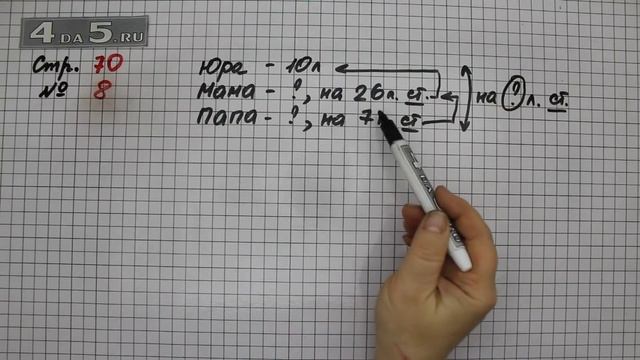 4 DA 5.RU
Стр. 70
№ 8
Юра - 10л
Мама - ?, на 26л. ст.
Папа - ?, на 7л ст
на ? л. ст.